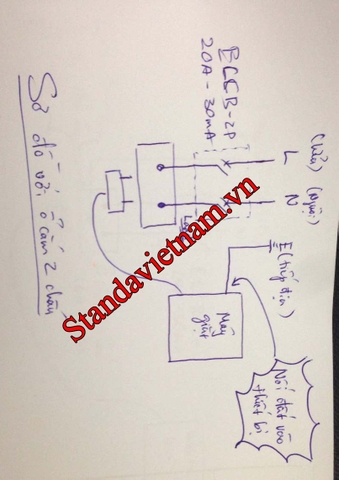 ELCB-2P
20A - 30mA
(Lửa) L
(Nguội) N
E (tiếp địa)
Load
Máy
giặt
Nối đất vào
thiết bị
Sơ đồ với ổ cắm 2 chấu
Standavietnam.vn